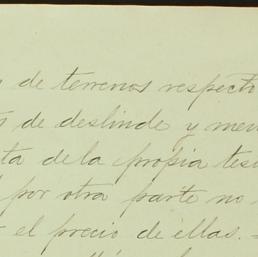 de terrenos respecto
de deslinde y men
ta de la propia tes
por otra parte no
el precio de ellas.